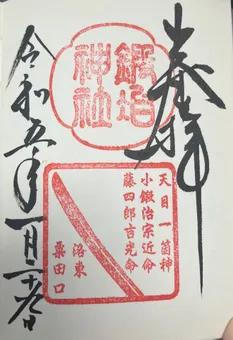 奉拝
鍛冶
神社
天目一箇神
小鍛治宗近命
藤四郎吉光命
洛東
粟田口
令和五年一月二十六日